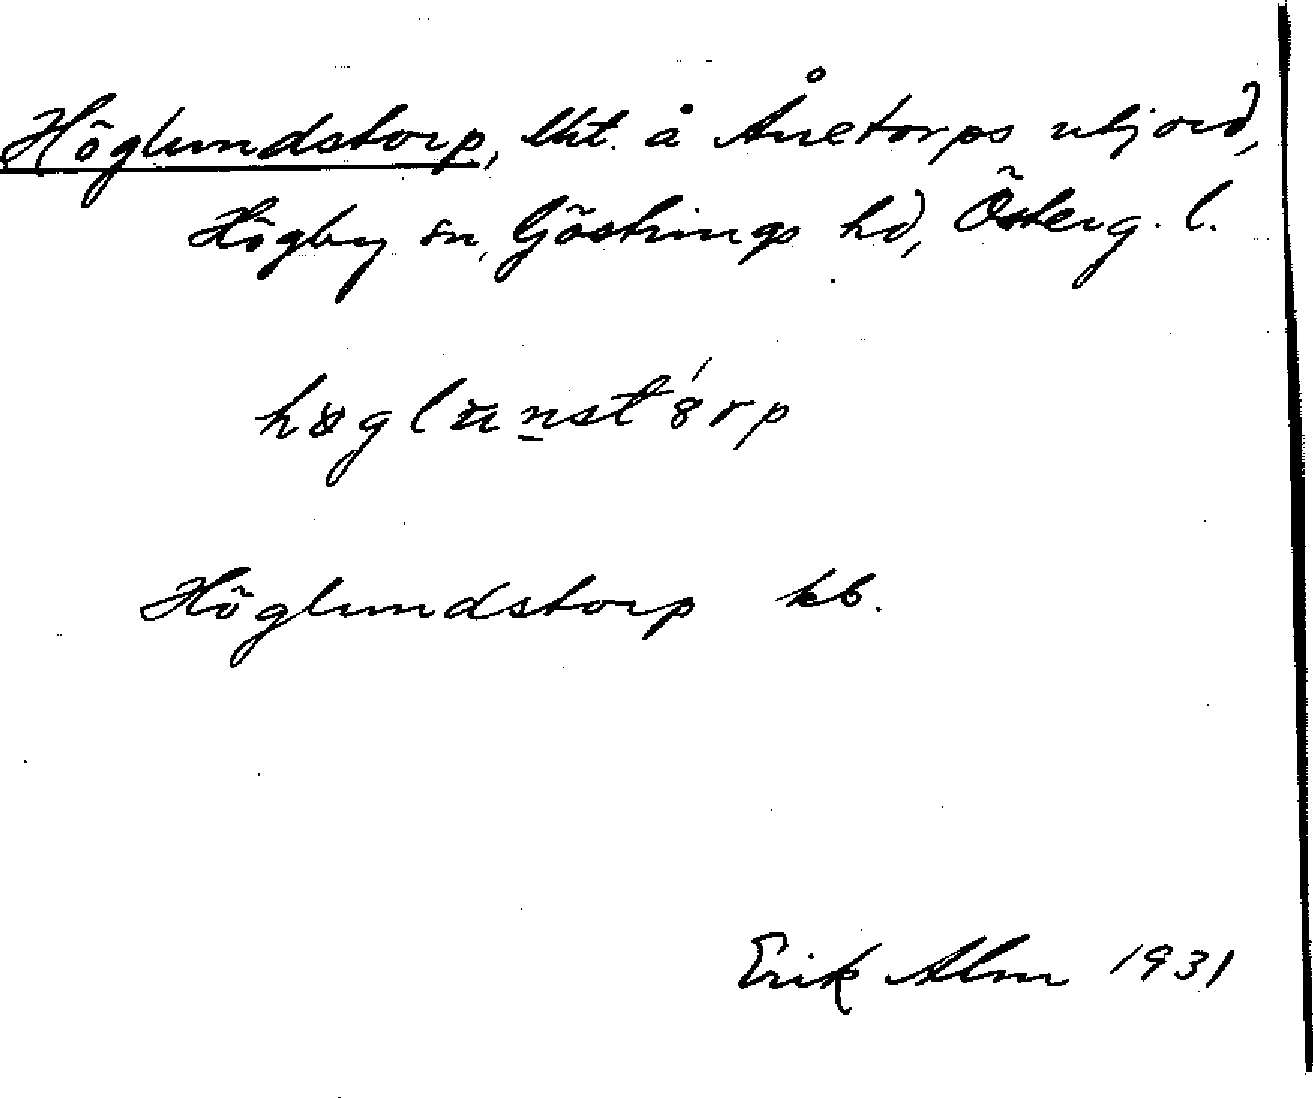 Höglundstorp, lht. å Åretorps utjord,
Högby sn, Göstrings hd, Österg. l.
Höglundstorp kb.
Erik Alm 1931